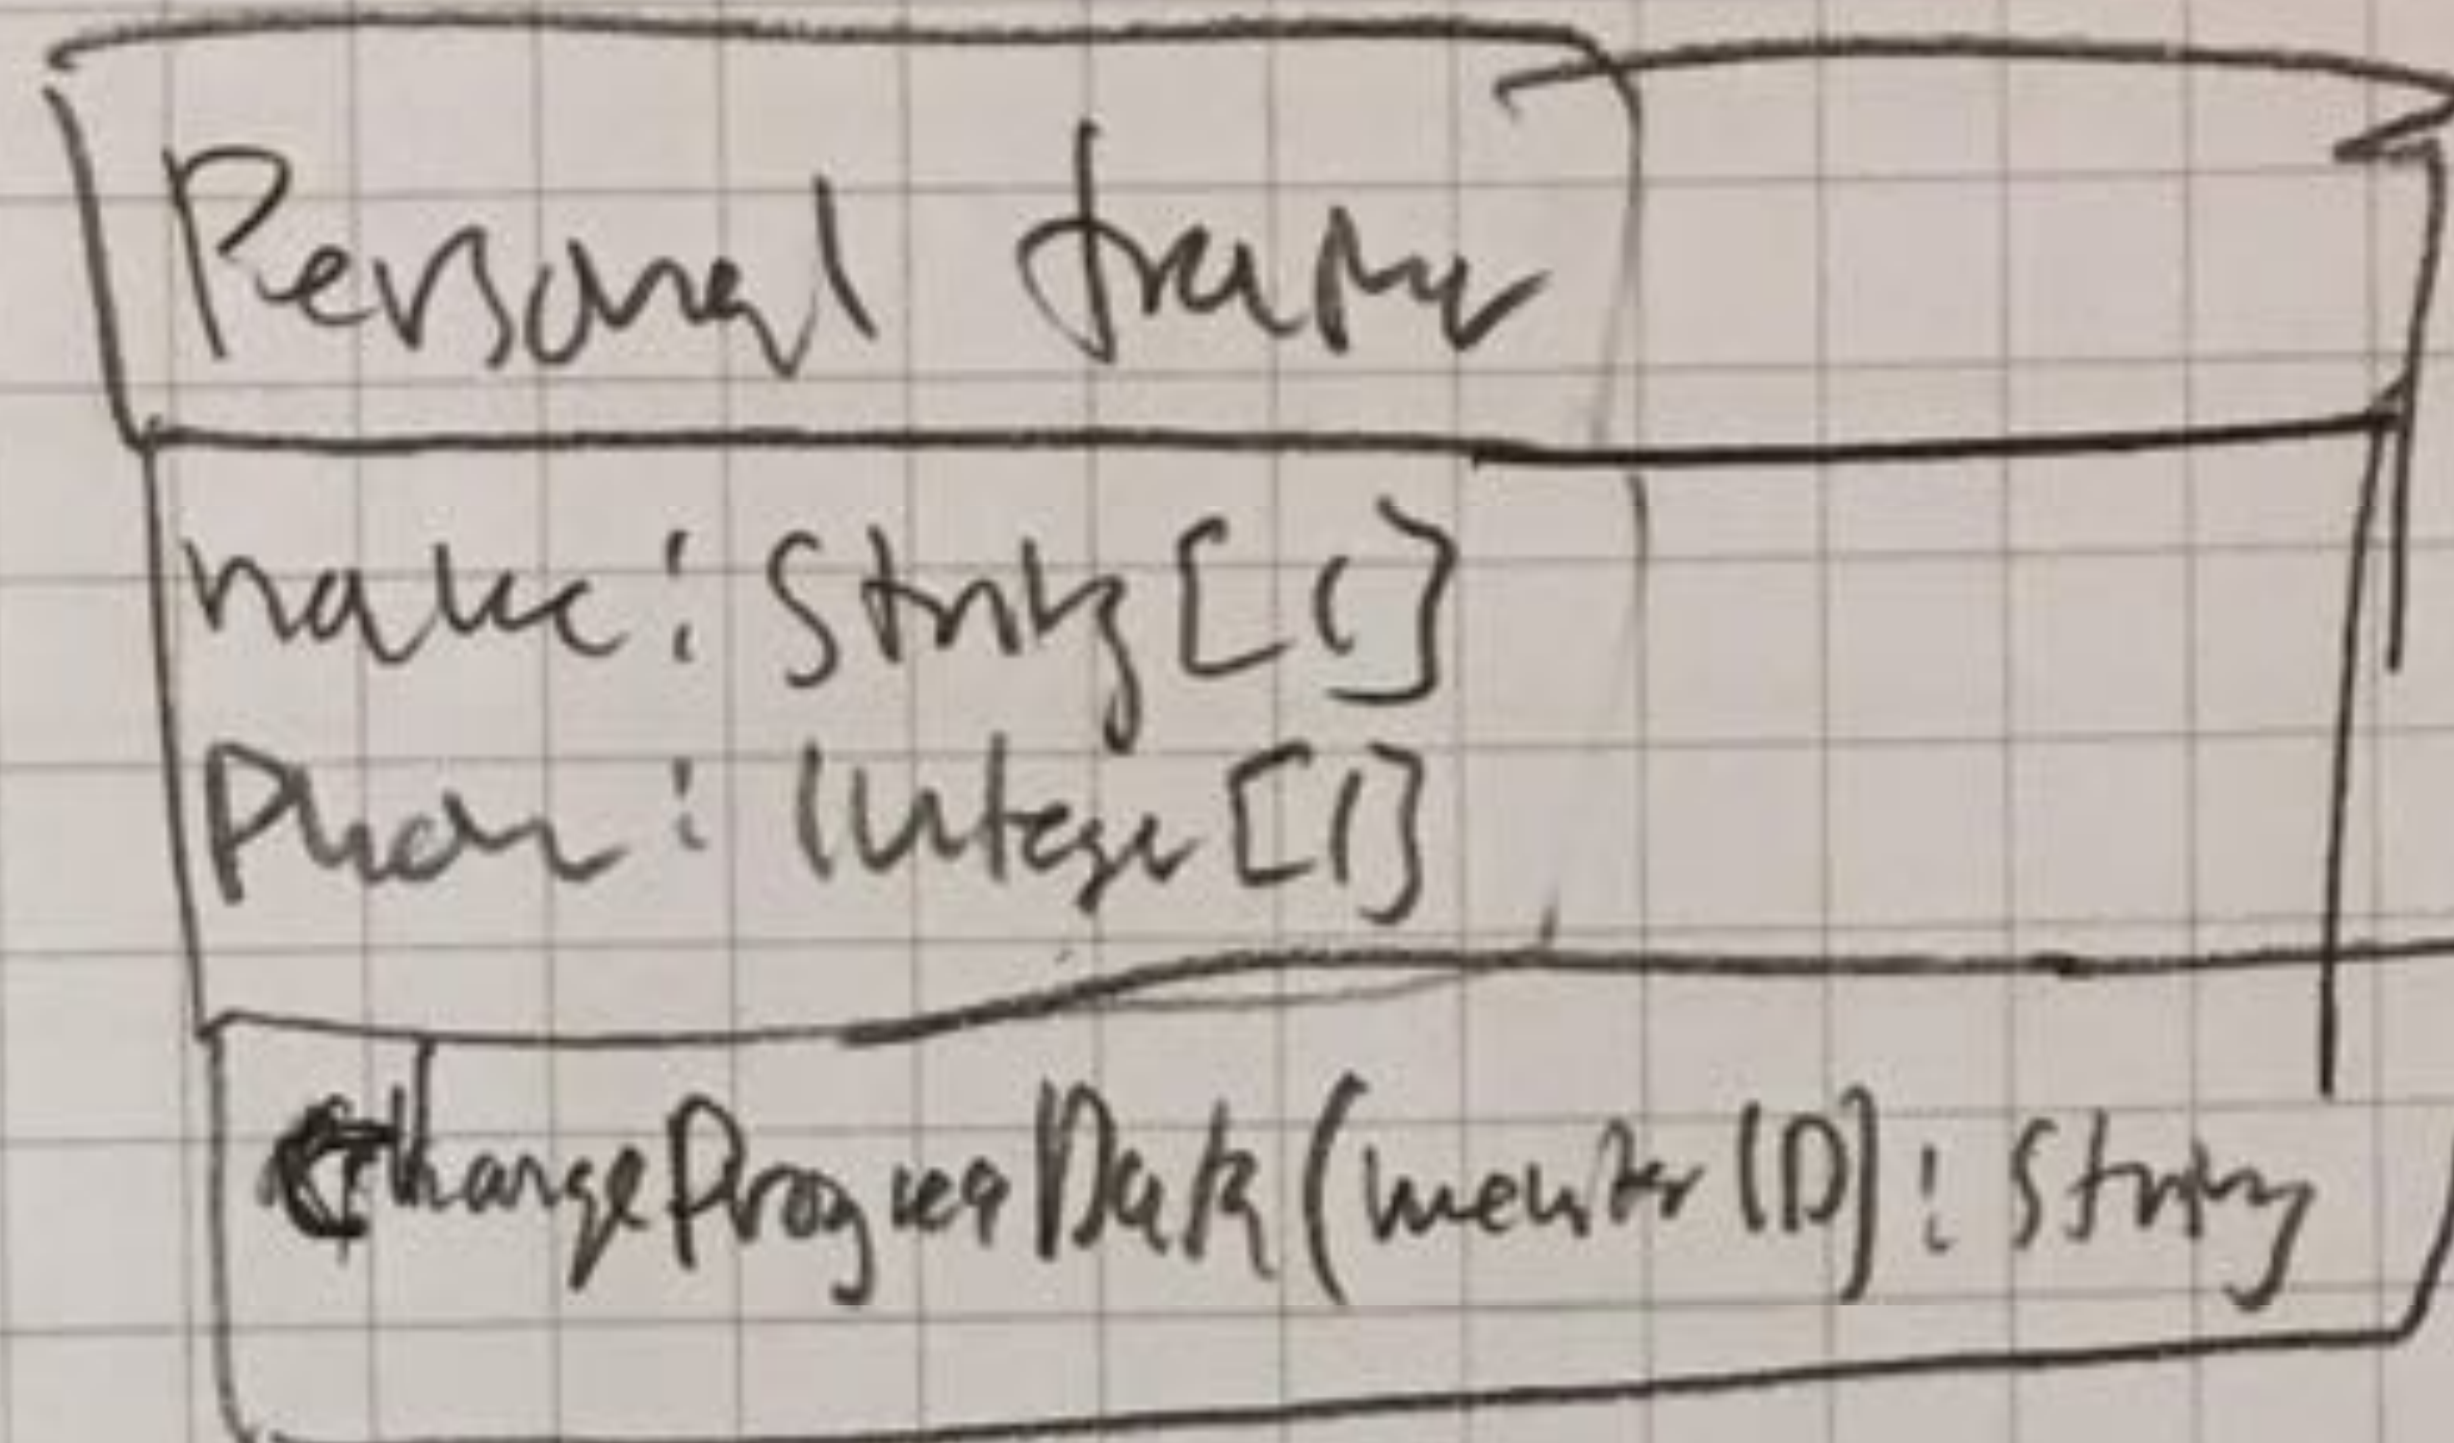 Personal trainer
name: String [1]
Phone: Integer [1]
ChangeProgressData(memberID): String